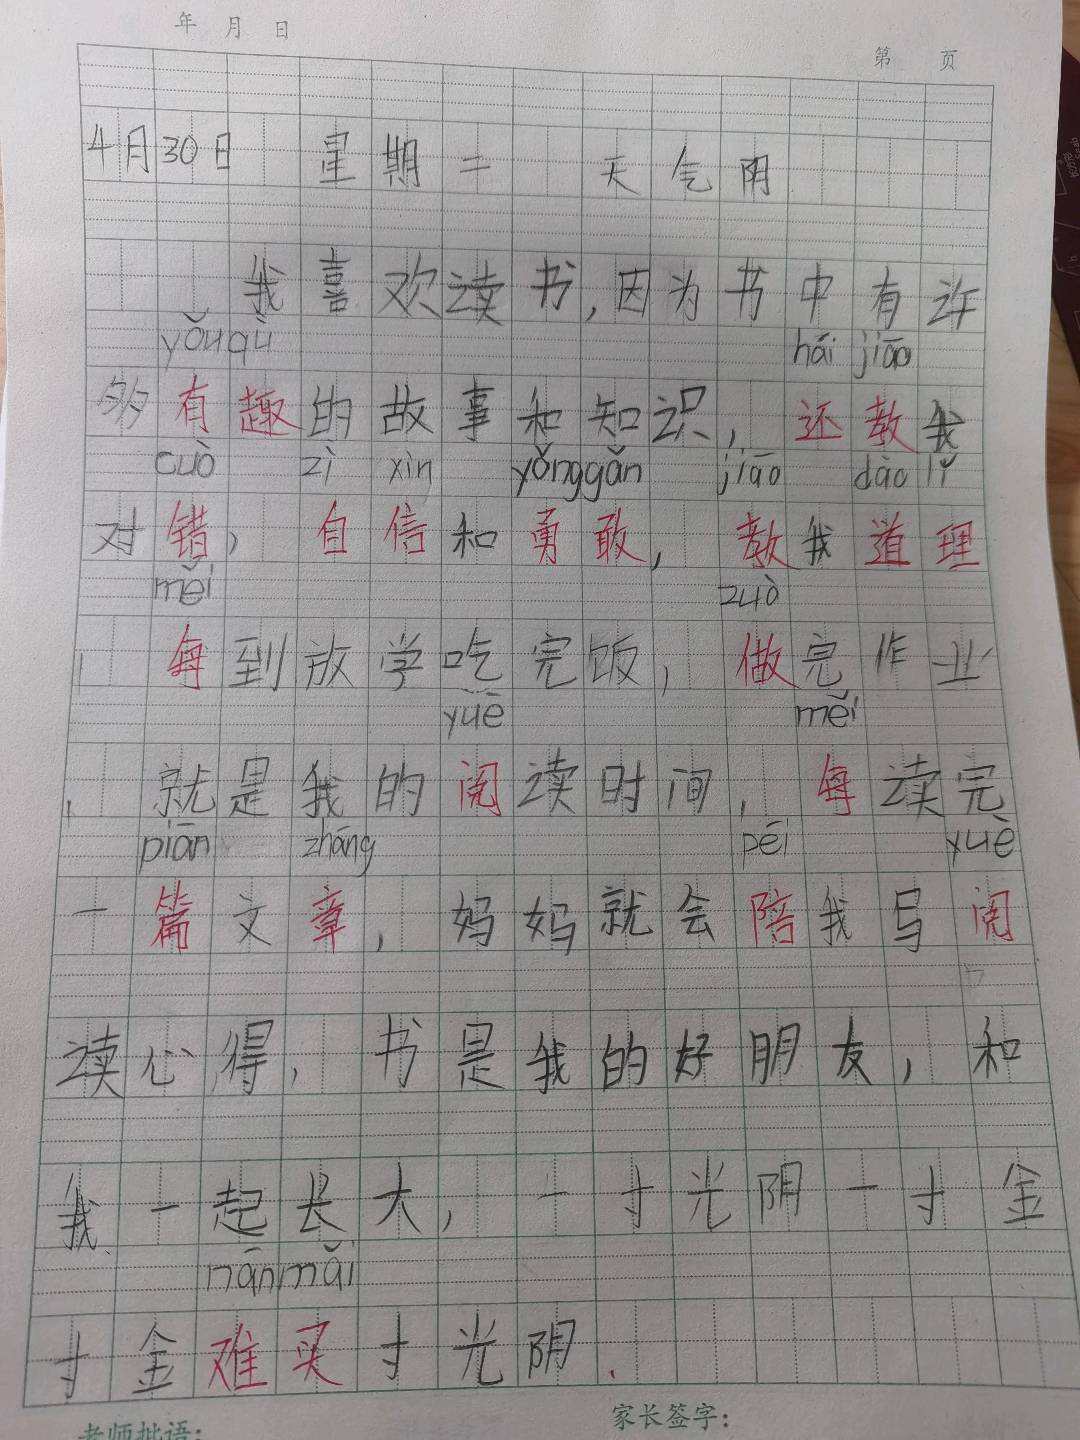 年 月 日
第 页
4月30日 星期二 天气阴
我喜欢读书,因为书中有许
yǒu qù hái jiāo
多有趣的故事和知识,还教我
cuò zì xìn yǒng gǎn jiāo dào lǐ
对错,自信和勇敢,教我道理
měi zuò
,每到放学吃完饭,做完作业
yuè měi
,就是我的阅读时间,每读完
piān zhāng péi yuè
一篇文章,妈妈就会陪我写阅
读心得,书是我的好朋友,和
我一起长大,一寸光阴一寸金
nán mǎi
寸金难买寸光阴.
老师批语: 家长签字: